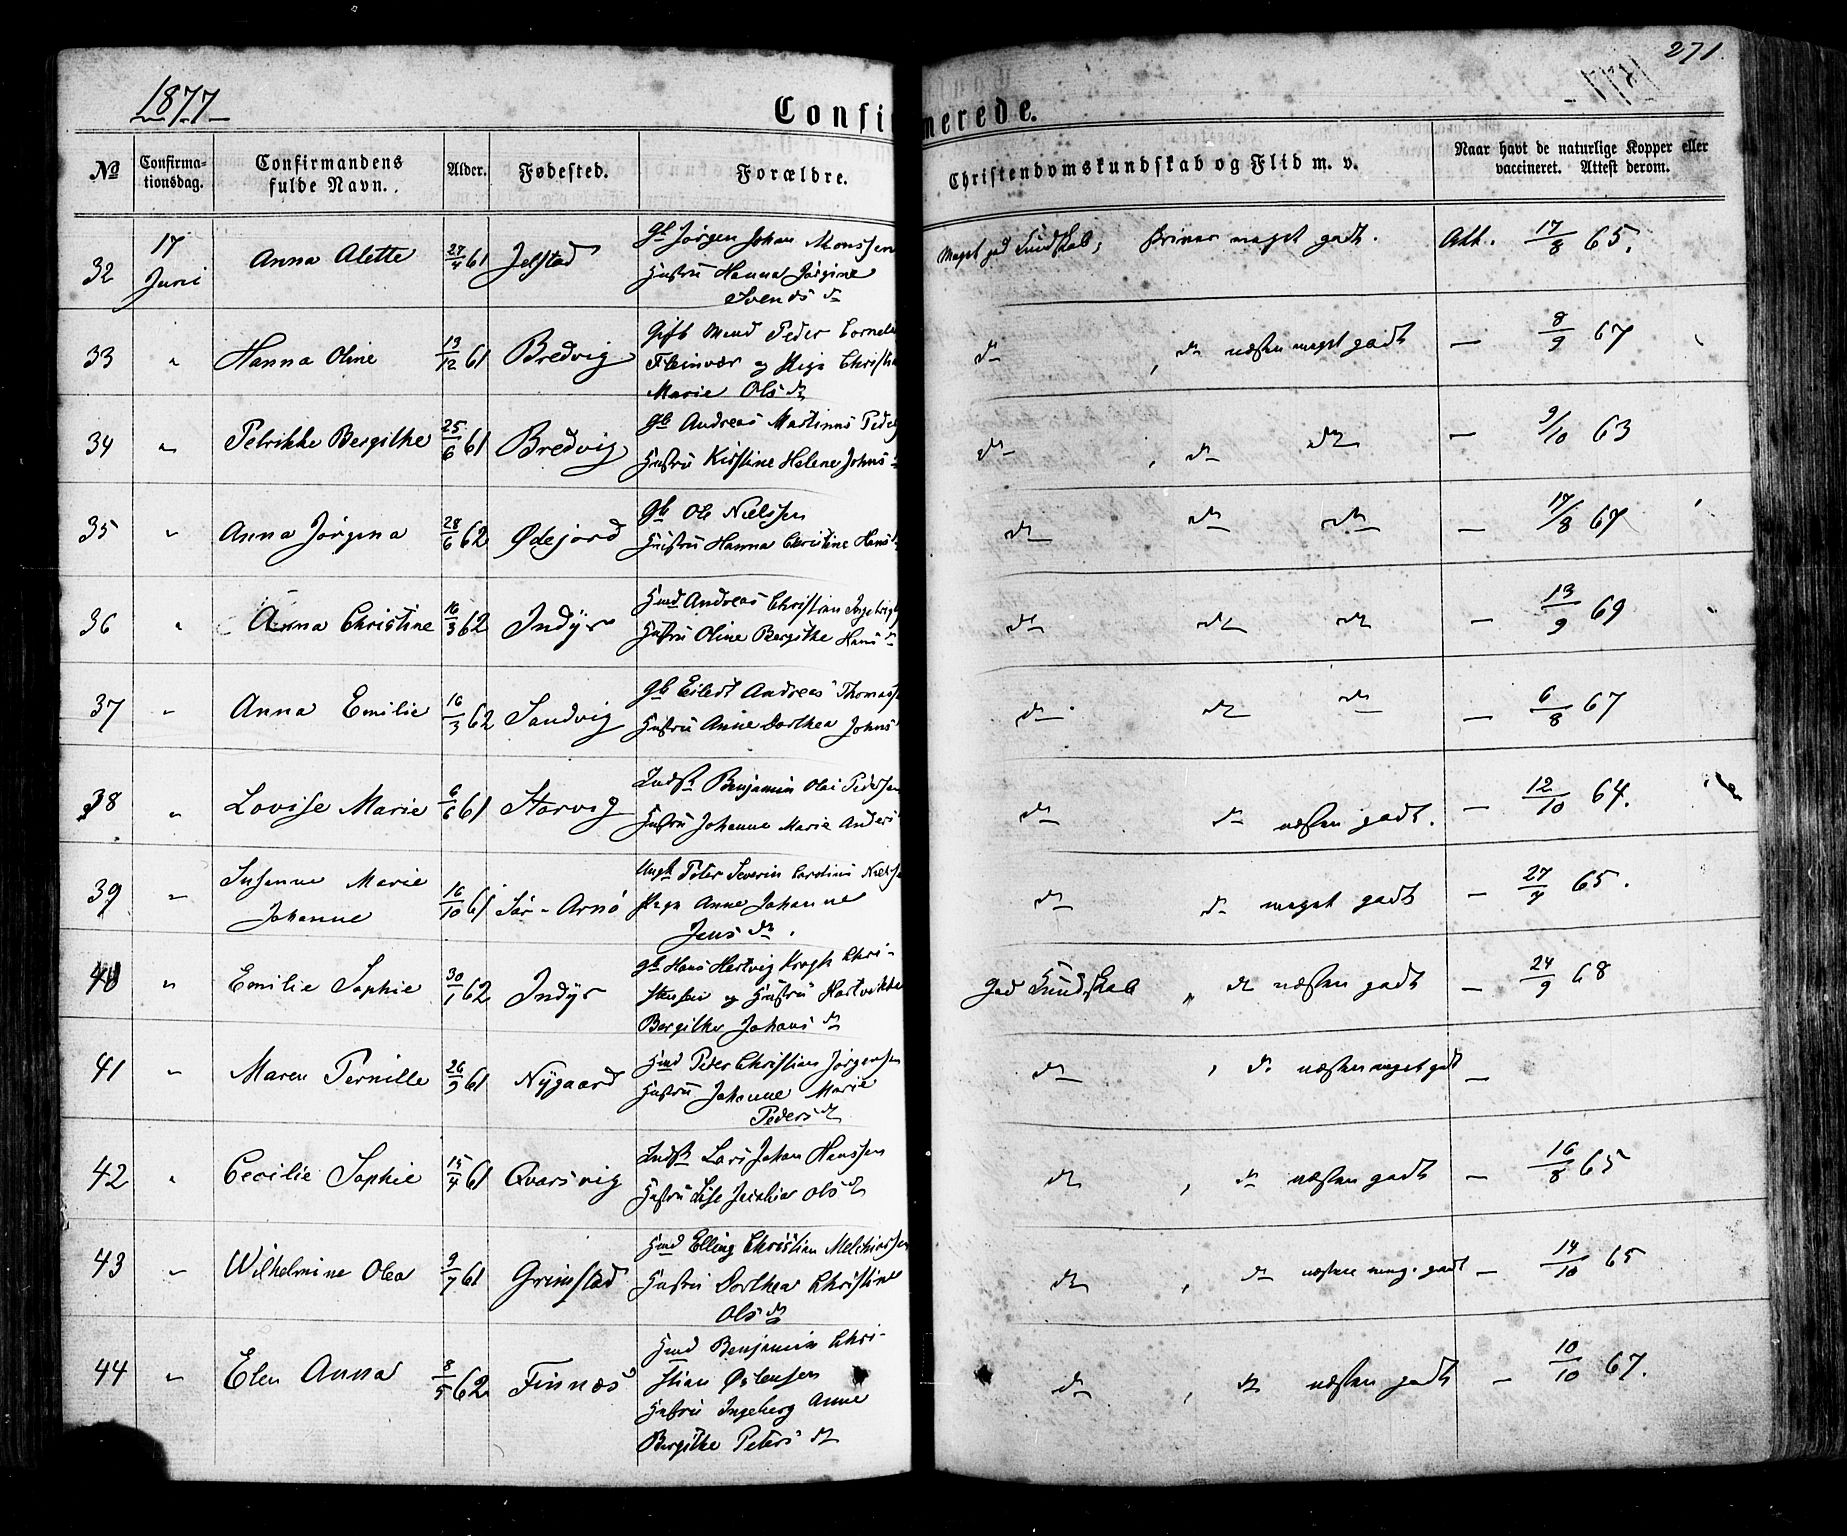 1877
271
Confirmerede.
No
Confirmationsdag.
Confirmandens fulde Navn.
Alder.
Fødested.
Forældre.
Christendomskundskab og Flid m. v.
Naar havt de naturlige Kopper eller vaccineret. Attest derom.
32 17 Juni Anna Alette 27/4 61 Jelstad Gb Jørgen Johan Monssen
Hustru Hanna Jørgine
Svends dr
Meget god Kundskab, skriver meget godt. Att. 17/8 65.
33 " Hanna Oline 13/12 61 Bredvig Gift Mand Peder Cornel
Fleinvær og Pige Christi
Marie Ols dr
do , do næsten meget godt — 8/9 67
34 " Petrikke Bergithe 25/6 61 Bredvig Gb Andreas Martinus Peders
Hustru Kirstine Helene Johns
do , do do — 9/10 63
35 " Anna Jørgina 28/6 62 Ødejord Gb Ole Nielssen
Hustru Hanna Christine Hans
do do do — 17/8 67
36 " Anna Christine 16/3 62 Indyr Hmd Andreas Christian
Hustru Oline Bergithe Hans dr
do do do — 13/9 69
37 " Anna Emilie 16/3 62 Sandvig Gb Eilert Andreas Thomass
Hustru Anne Dorthea Johns
do do do — 6/8 67
38 " Lovise Marie 6/6 61 Storvig Indst Benjamin Olai Pedersen
Hustru Johanne Marie Anders
do do næsten godt. — 12/10 64.
39 " Susanne Marie
Johanne 16/10 61 Sør-Arnø Ungk Peter Severin Carolius Niels
Pige Anne Johanne
Jens dr.
do do meget godt — 27/4 65.
40 " Emilie Sophie 30/1 62 Indyr Gb Hans Hartvig Krogh Chri-
stensen og Hustru Hartvikke
Bergithe Johans dr
God Kundskab " do næsten godt — 24/9 68
41 " Maren Pernille 26/9 61 Nygaard Hmd Peder Christian Jørgensen
Hustru Johanne Marie
Peders dr
do , do næsten meget godt —
42 " Cecilie Sophie 15/4 61 Qvarsvig Indst Lars Johan Hanssen
Hustru Lise Ols dr
do , do næsten godt — 16/8 65
43 " Wilhelmine Olea 9/7 61 Grimstad Hmd Elling Christian Melchiorsen
Hustru Dorthea Christine
Ols dr
do , do næsten meg. godt — 14/10 65
44 " Elen Anna 8/5 62 Finnæs Hmd Benjamin Chri-
stian Østensen
Hustru Ingeborg Anne
Bergithe Peters dr
do , do næsten godt — 10/10 67.